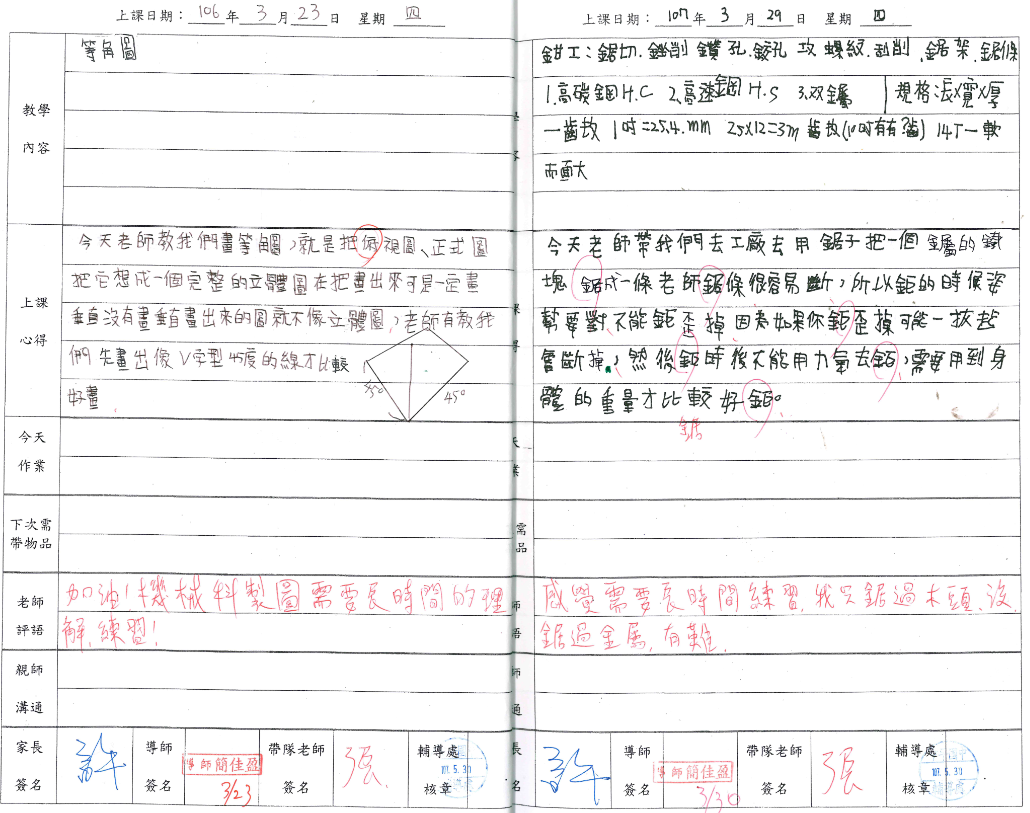 上課日期：106年3月23日 星期 四
教學內容
等角圖
上課心得
今天老師教我們畫等角圖，就是把俯視圖、正式圖
把它想成一個完整的立體圖在把畫出來可是一定畫
垂直沒有畫垂直畫出來的圖就不像立體圖，老師有教我
們先畫出像V字型45度的線才比較
好畫
45°
45°
今天作業
下次需帶物品
老師評語
加油！機械科製圖需要長時間的理
解、練習！
親師溝通
家長簽名
許
導師簽名
導師簡佳盈
3/23
帶隊老師簽名
張
輔導處核章
107.5.30
上課日期：107年3月29日 星期 四
學
容
鉗工：鋸切、銼削 鑽孔、鉸孔 攻螺紋、刮削、鋸架、鋸條
1.高碳鋼H.C 2.高速鋼H.S 3.双鑲 規格：長X寬X厚
一齒故 1吋=25.4.mm 25X12=3m 齒故(1吋有有?齒) 14T一軟
而面大
課
得
今天老師帶我們去工廠去用鋸子把一個鑲的鐵
塊鋸成一條老師鋸條很容易斷，所以鉅的時候姿
勢要對不能鉅歪掉因為如果你鉅歪掉可能一拔起
會斷掉，然後鉅時後不能用力氣去鉅，需要用到身
體的重量才比較好鉅。
鋸
天
業
需
品
師
語
感覺需要長時間練習，我只鋸過木頭，沒
鋸過金屬，有難.
師
通
長
名
許
導師簽名
導師簡佳盈
3/30
帶隊老師簽名
張
輔導處核章
107.5.30